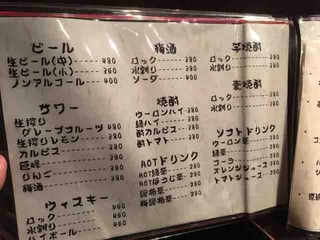 ビール
生ビール(中) 480
生ビール(小) 360
ノンアルコール 400
サワー
生搾り
グレープフルーツ 480
生搾りレモン 380
カルピス 380
巨峰 380
りんご 380
梅酒 380
ウィスキー
ロック 460
水割り 460
ハイボール
梅酒
ロック 380
水割り 380
ソーダ 380
焼酎
ウーロンハイ 380
緑ハイ 380
酎カルピス 380
酎トマト 380
HOTドリンク
HOT緑茶
HOTほうじ茶 180
昆布茶 180
梅昆布茶 180
芋焼酎
ロック 380
水割り 380
麦焼酎
ロック 380
水割り 380
ソフトドリンク
ウーロン茶 280
緑茶 280
コーラ 280
オレンジジュース 280
トマトジュース 280